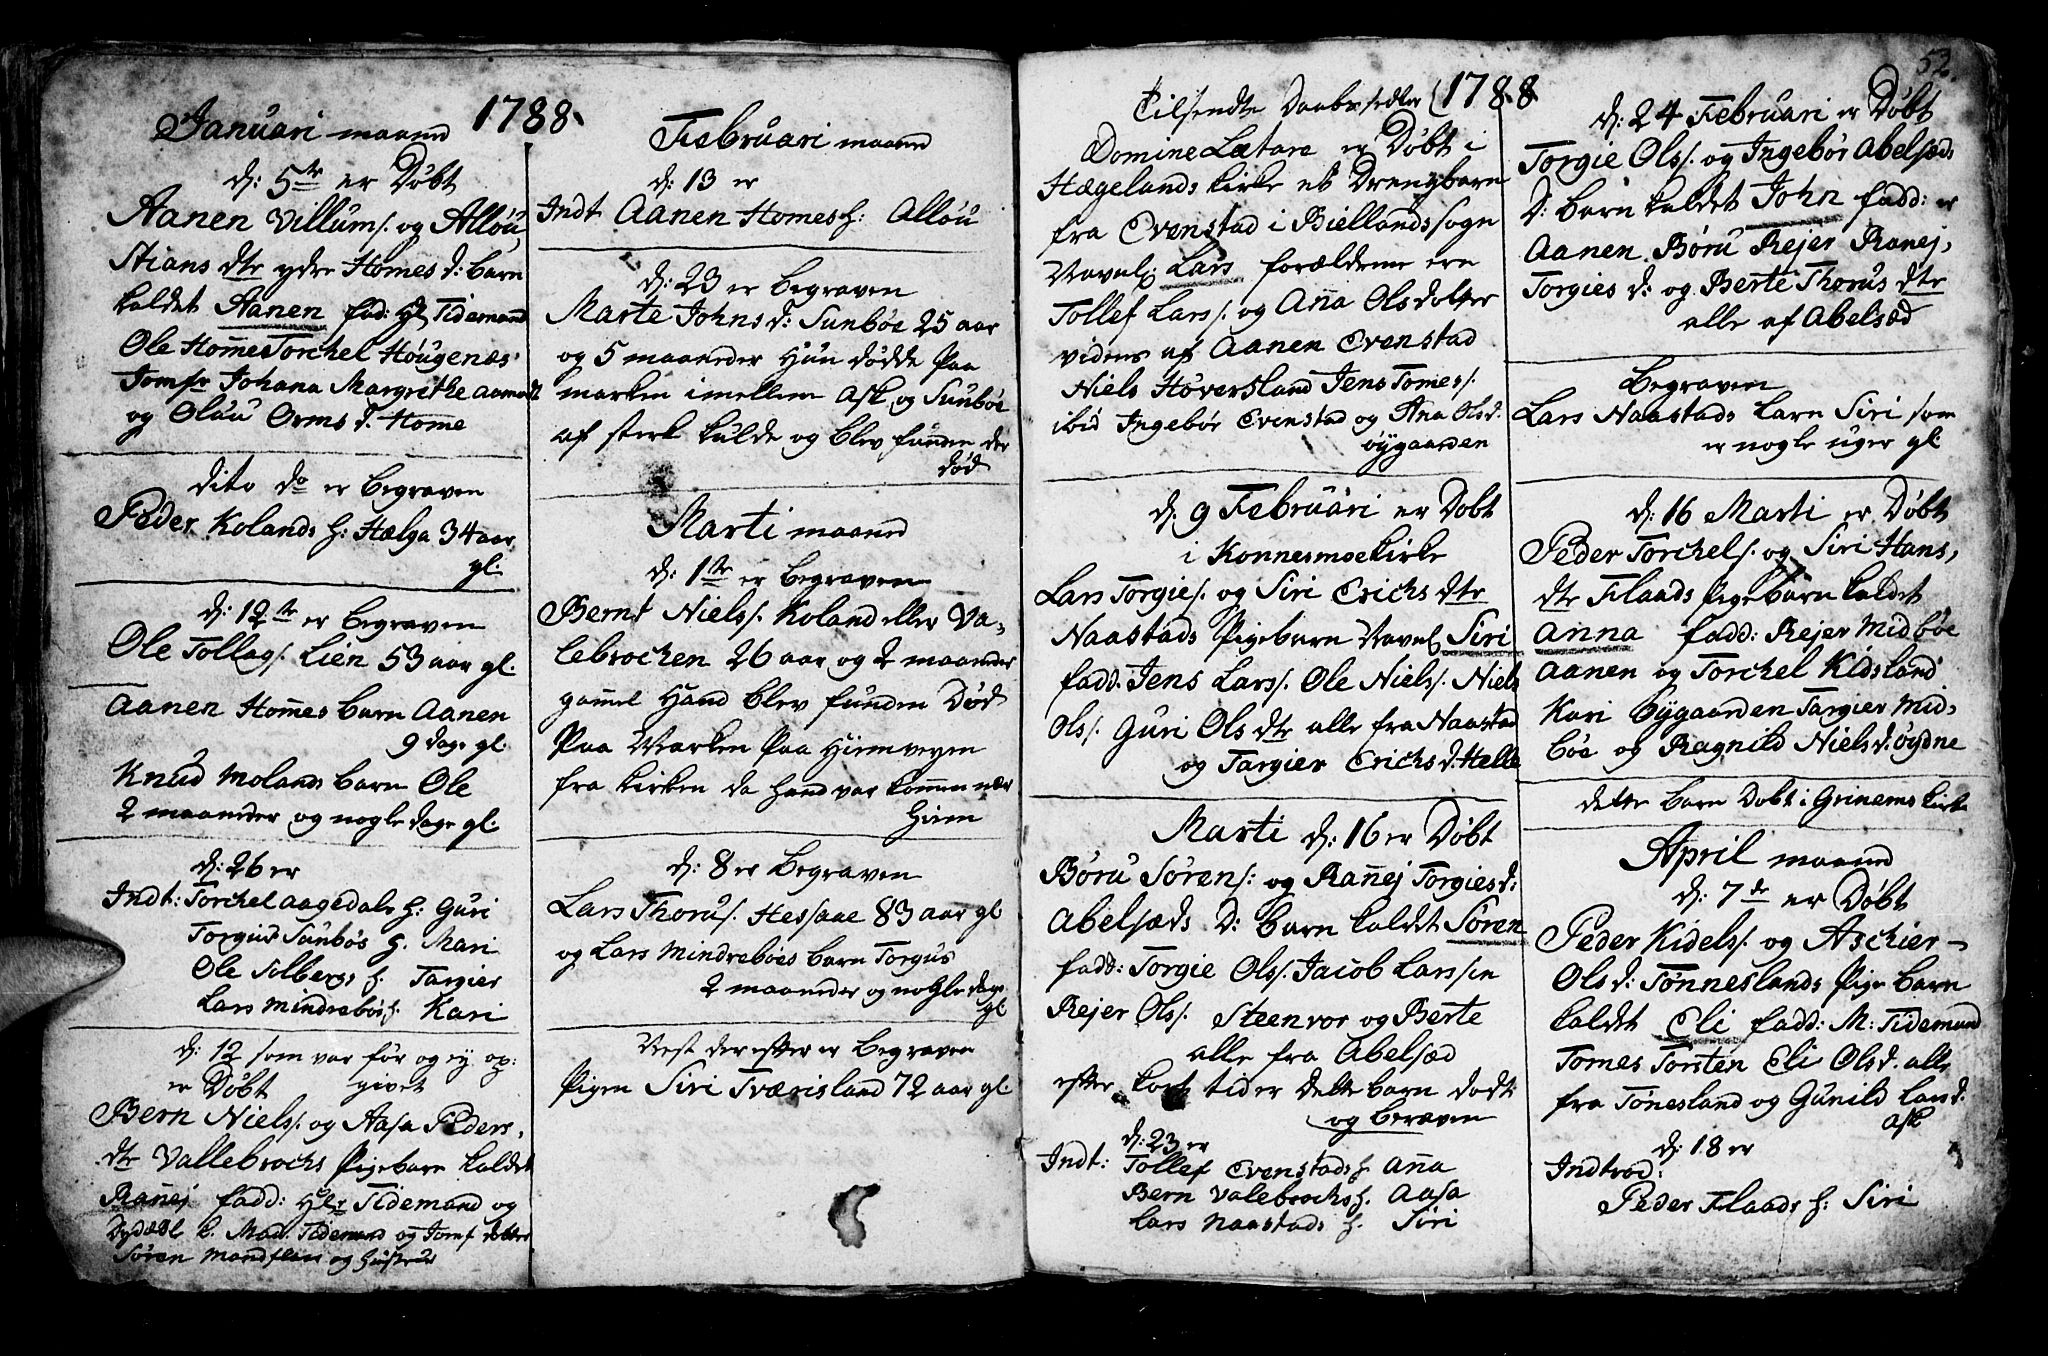 Januari maaned 1788.
d: 5te er Døbt
Aanen Villums. og Alløu
Stians dtr ydre Homes d: barn
kaldet Aanen fad: Hl Tidemand
Ole Home Torchel Hougenæs
Jomfr Johana Margrethe Aamodt
og Oluu Orms d. Home
dito do er begraven
Peder Kolands h: Hælga 34 aar
gl.
d: 12te er begraven
Ole Tollags. Lien 53 aar gl.
Aanen Homes barn Aanen
9 dage gl.
Knud Molands barn Ole
2 maaneder og nogle dage gl.
d: 26 er
Indt: Torchel Aagedals h: Guri
Torgius Sunbøs h. Mari
Ole Solbergs h. Targier
Lars Mindrebøs h. Kari
d: 12 som var før og ej op:
er Døbt givet
Bern Niels. og Aasa Peders,
dtr Vallebrochs Pigebarn kaldet
Ranej fadd: Hlr Tidemand og
Mad. Tidemand og Jomf
Søren og hustrue
Febuari maaned
d: 13 er
Indt Aanen Homes h: Alløu
d: 23 er begraven
Marte Johns d: Sunbøe 25 aar
og 5 maaneder Hun dødde paa
marken imellem Ask og Sunbøe
af sterk kulde og blev funden der
død
Marti maaned
d: 1te er begraven
Bernt Niels. Koland eller Va,
lebrochen 26 aar og 2 maaneder
gamel Hand blev funden Død
Paa Marken paa Hiemveyen
fra kirken da Hand var kommen nær
Hiem
d: 8 er begraven
Lars Thorus. Hessaae 83 aar gl
og Lars Mindrebøes barn Torgus
2 maaneder og nogle dage
gl
Nest der efter er begraven
Pigen Siri Tværisland 72 aar gl.
Tilsendte Daabsedler 1788
Domine Lætare er Døbt i
Hægelands kirke et Drengbarn
fra Evenstad i Biellands sogn
Navnl. Lars forældrene ere
Tollef Lars. og Ana Olsdotter
videns af Aanen Evenstad
Niels Høversland Jens Tomes.
ibid Ingebør Evenstad og Ana Olsd.
øygaarden
d: 9 Februari er Døbt
i Konnesmoe kirke
Lars Torgies. og Siri Erichs dtr
Naastads Pigebarn Navnl. Siri
fadd: Jens Lars. Ole Niels. Niels
Ols. Guri Ols dtr alle fra Naastad
og Targier Erichs d. Helle
Marti d: 16 er Døbt
Børu Sørens: og Ranej Torgies d:
Abelsæds D: barn kaldet Søren
fadd: Torgie Ols. Jacob Larssen
Rejer Ols. Steenvor og Berte
alle fra Abelsæd
efter kort tid er dette barn dødt
og beraven
d: 23 er
Indt: Tollef Evenstads h. Ana
Bern Valebrochs h. Aasa
Lars Naastads h. Siri
52.
d: 24 Februari er Døbt
Torgie Ols. og Ingebør Abelsæds
D: barn kaldet John fadd: er
Aanen. Børu Rejer Ranej,
Torgies d: og Berte Thorus dtr
alle af Abelsæd
begraven
Lars Naastads barn Siri som
er nogle uger gl.
d: 16 Marti er Døbt
Peder Torchels. og Siri Hans,
dtr Flaads Pigebarn kaldet
Anna fadd: Rejer Midbøe
Aanen og Torchel Kidsland
Kari bygaarden Targier Mid,
bøe og Ragnild Niels d: øydne
dette barn Døbt i Grinems kirke
April maaned
d: 7de er Døbt
Peder Kidels. og Aschier-
Ols d: Tønneslands Pige barn
kaldet Eli fadd: M: Tidemand
Tomes Torsten Eli Ols d. alle
fra Tønesland og Gunild Lars d.
ask
d: 18 er
Indtrød:
Peder Flaads h: Siri